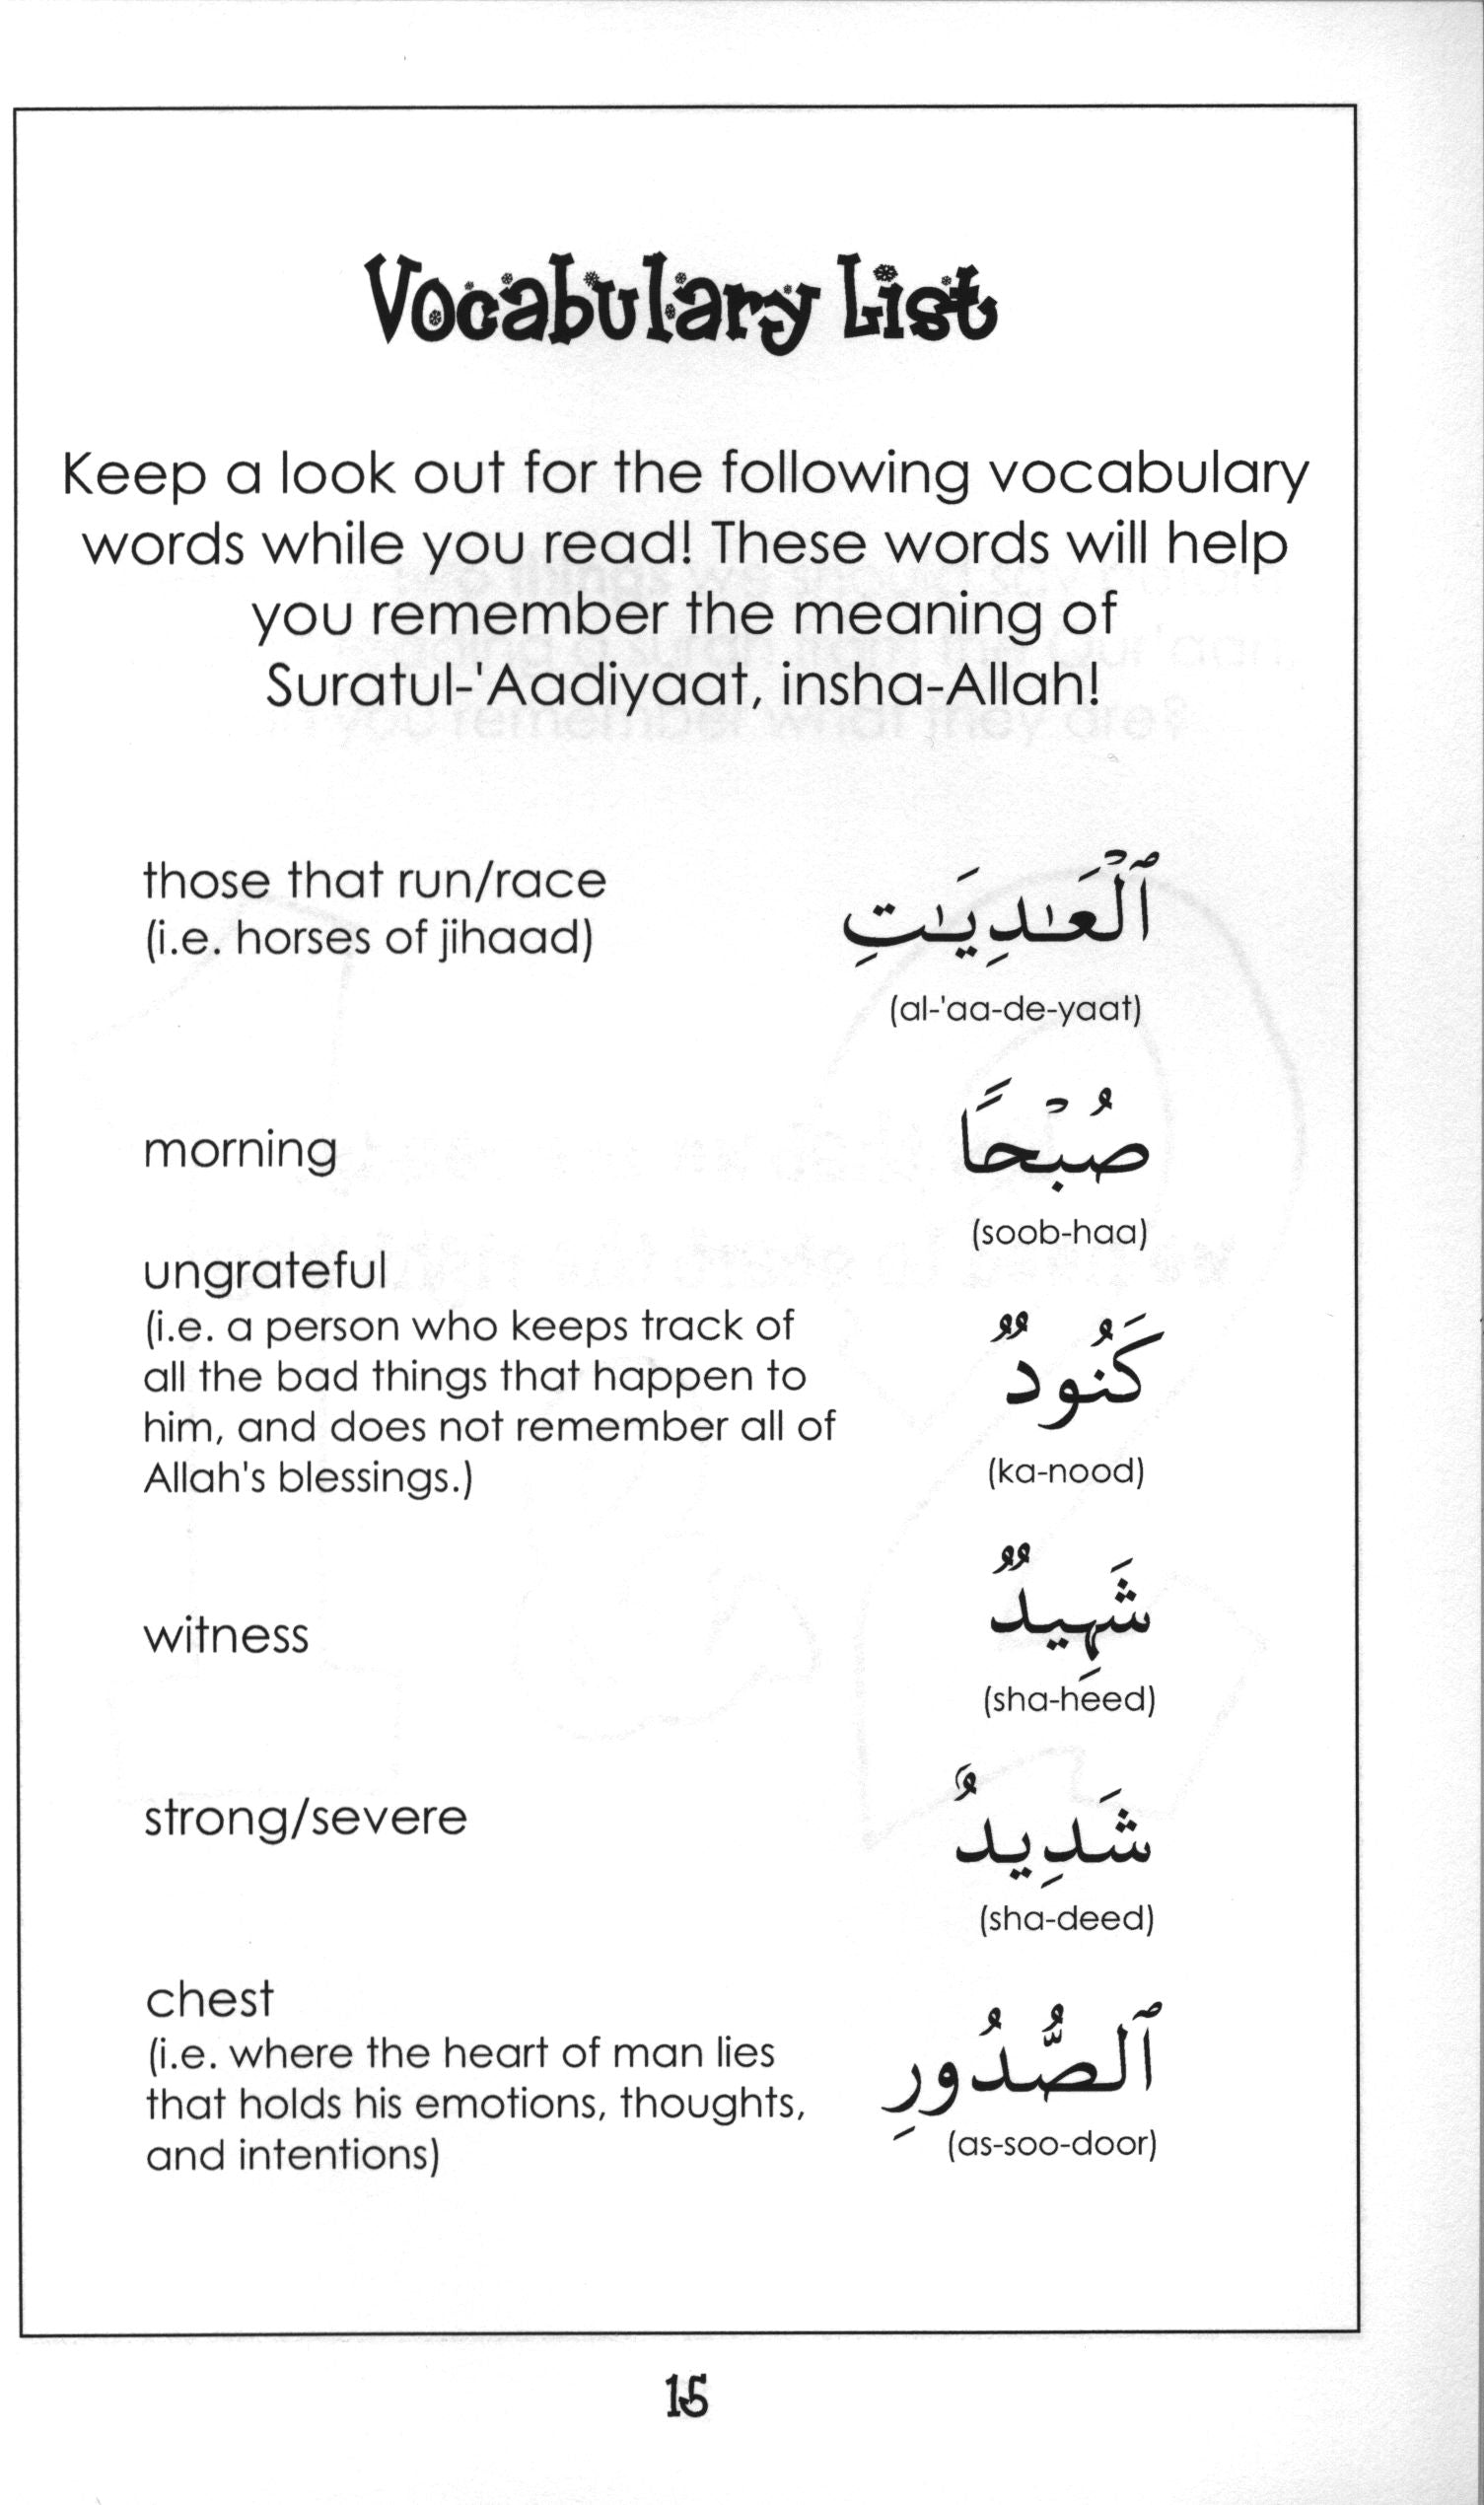 Vocabulary List
Keep a look out for the following vocabulary
words while you read! These words will help
you remember the meaning of
Suratul-'Aadiyaat, insha-Allah!
those that run/race
(i.e. horses of jihaad)
ٱلْعَـٰدِيَـٰتِ
(al-'aa-de-yaat)
morning
صُبْحًا
(soob-haa)
ungrateful
(i.e. a person who keeps track of
all the bad things that happen to
him, and does not remember all of
Allah's blessings.)
كَنُودٌ
(ka-nood)
witness
شَهِيدٌ
(sha-heed)
strong/severe
شَدِيدٌ
(sha-deed)
chest
(i.e. where the heart of man lies
that holds his emotions, thoughts,
and intentions)
ٱلصُّدُورِ
(as-soo-door)
15